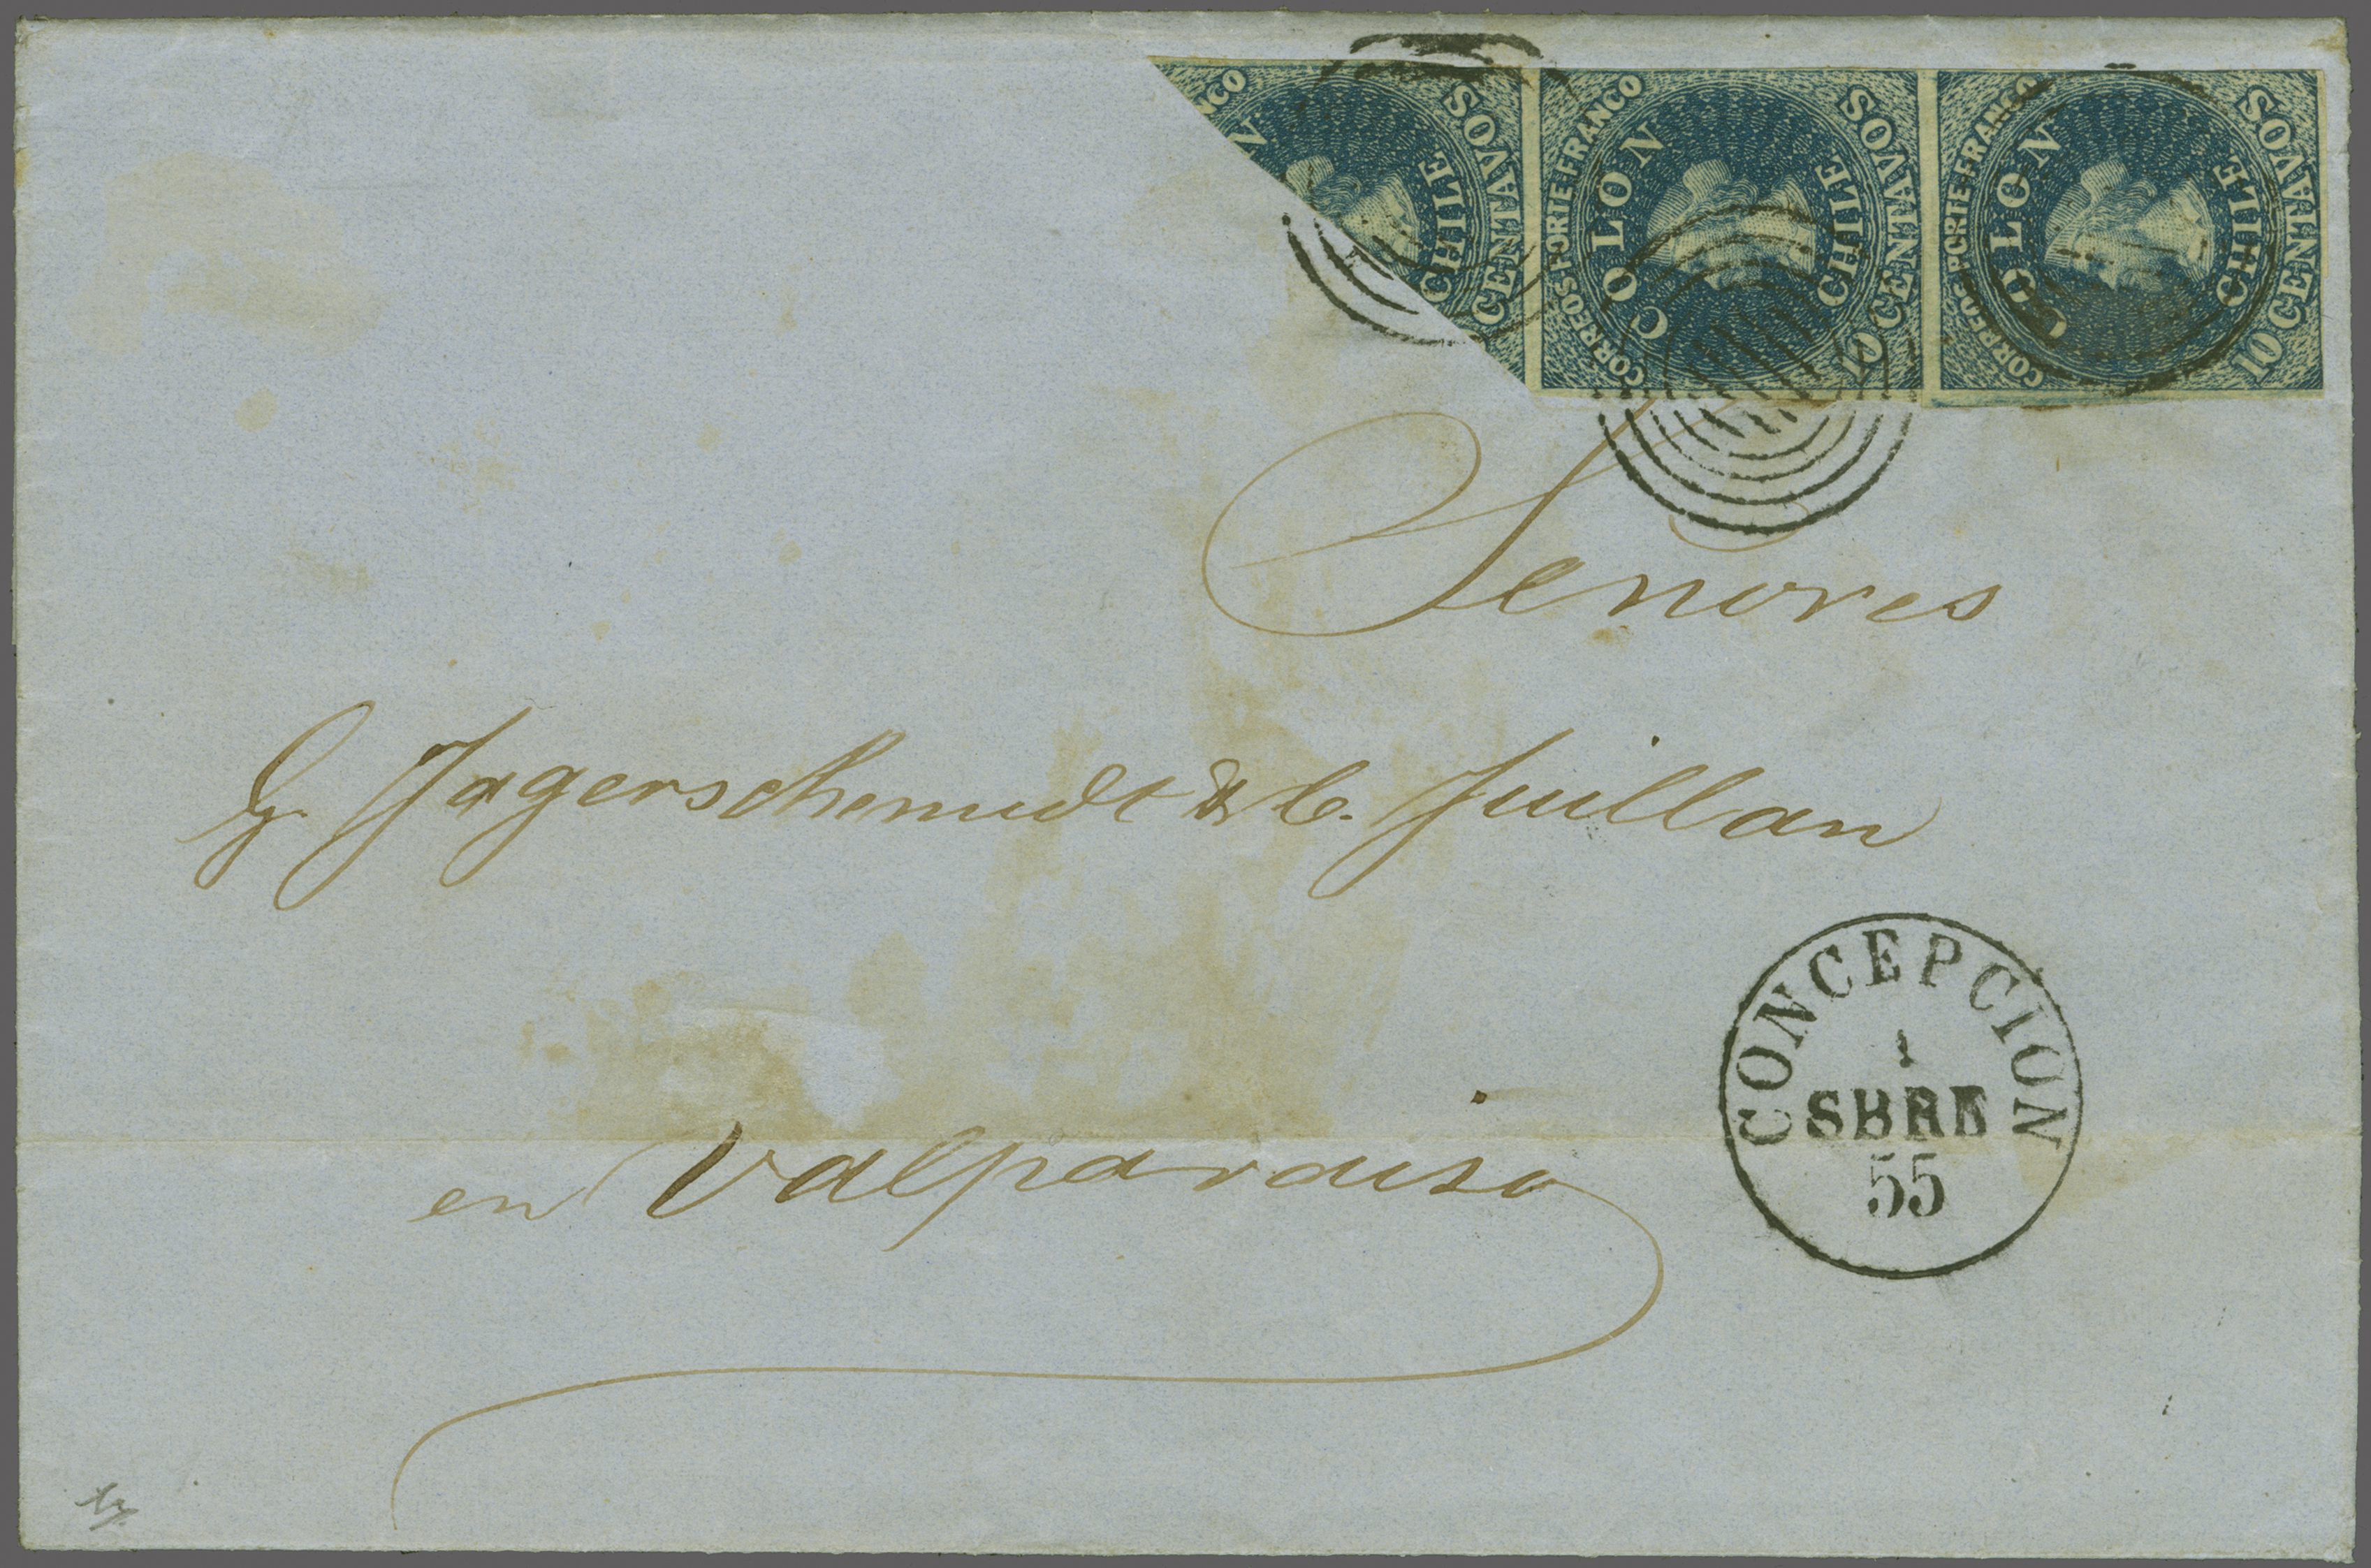 NCO N CHILE CENTAVOS
CORREOS PORTE FRANCO COLON CHILE 10 CENTAVOS
CORREOS PORTE FRANCO COLON CHILE 10 CENTAVOS
Senores
G. Jagerschmidt & C. Juillan
en Valparaiso
CONCEPCION
1
SBRE
55